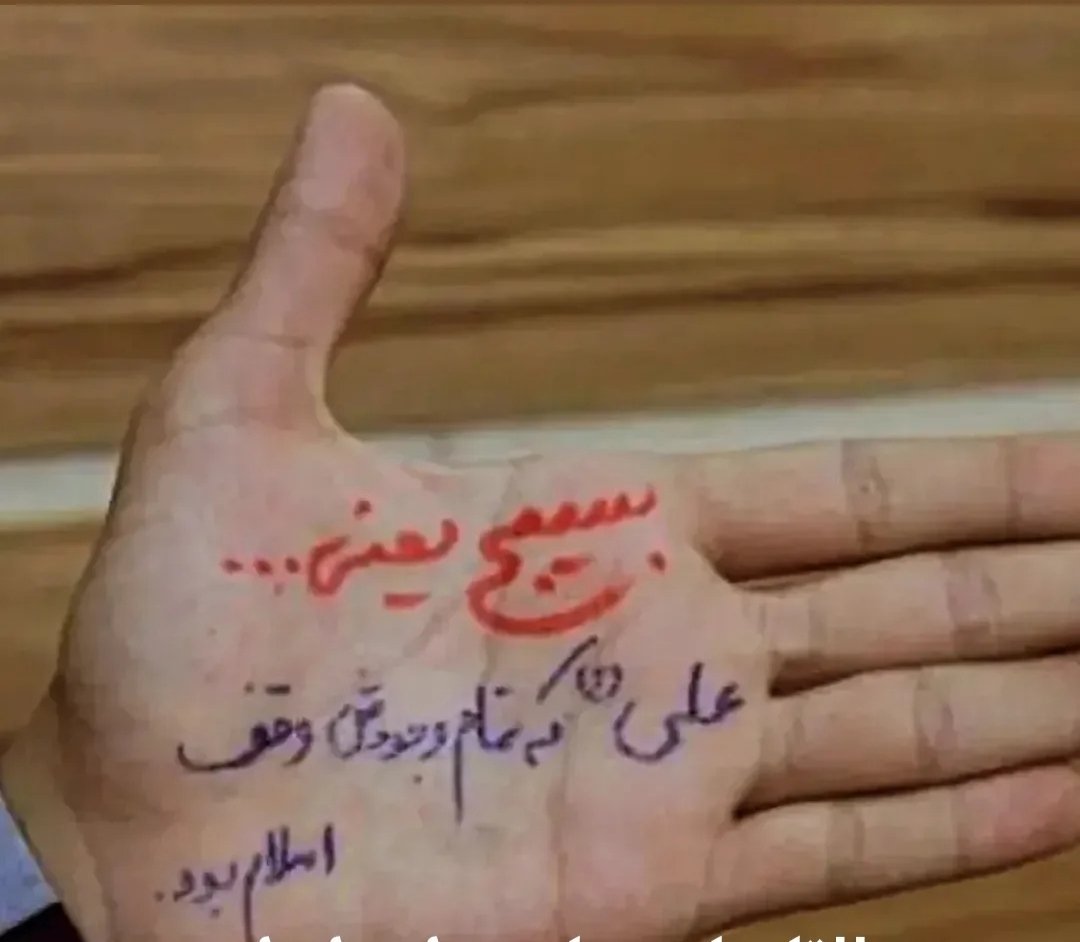 بسیج یعنی...
علی (ع) که تمام وجودش وقف
اسلام بود.